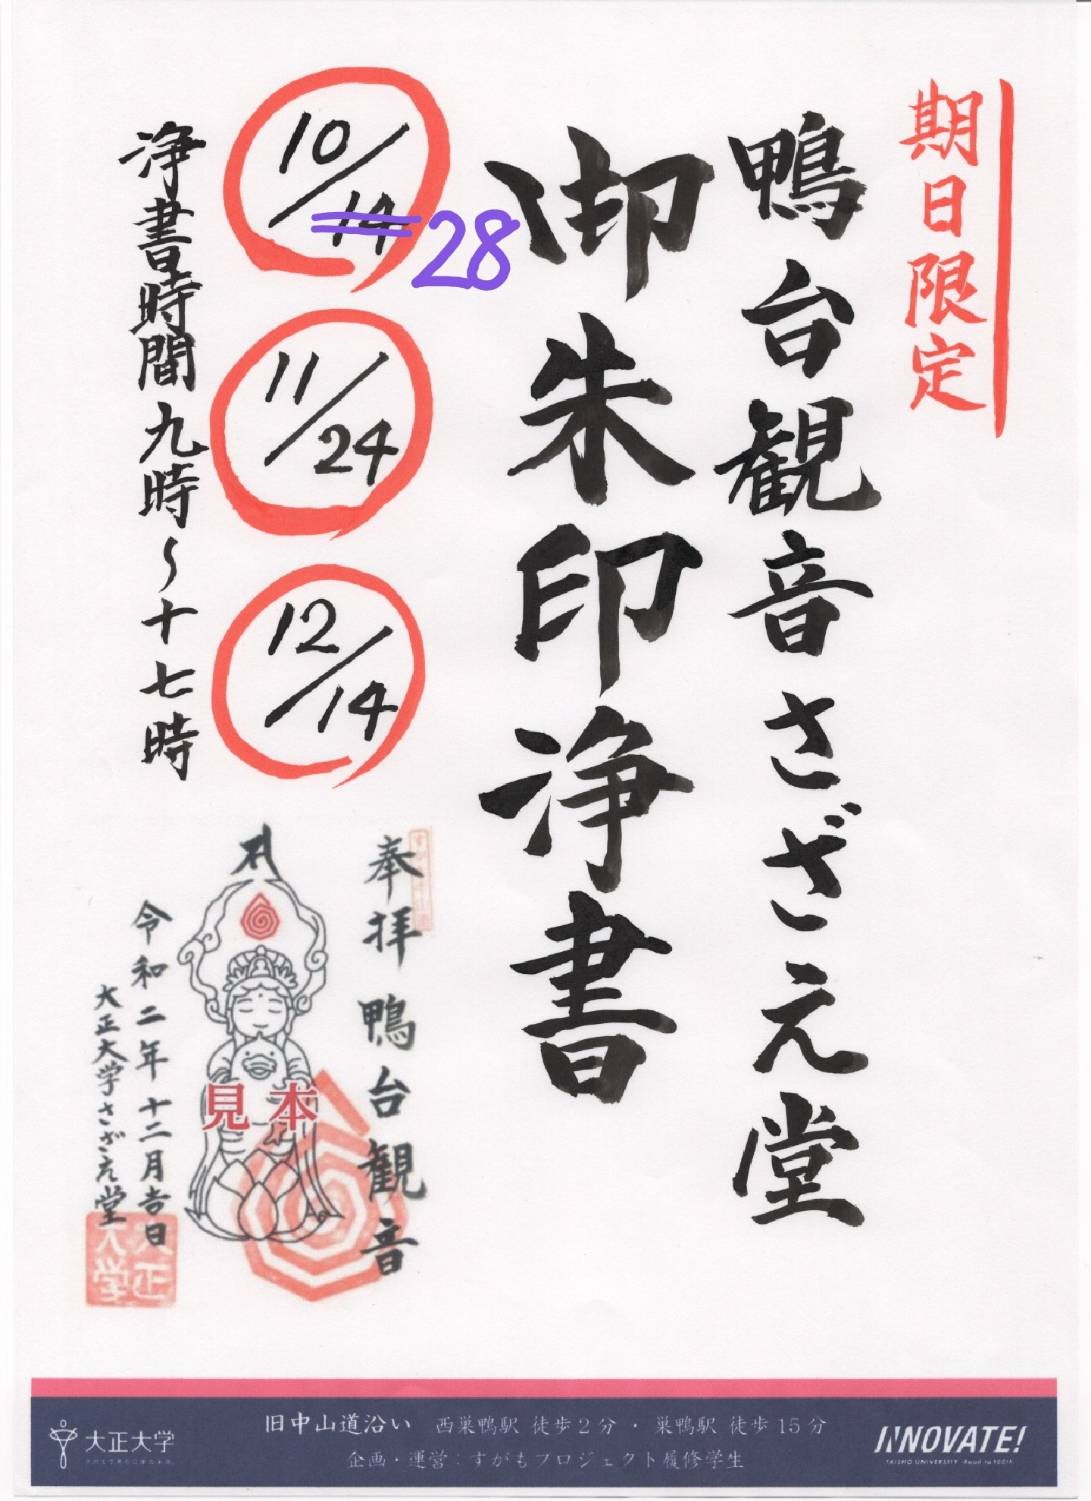 期日限定
鴨台観音さざえ堂
御朱印浄書
10/14
28
11/24
12/14
浄書時間九時~十七時
奉拝 鴨台観音
見本
令和二年十二月吉日
大正大学さざえ堂
大正
大学
大正大学
旧中山道沿い 西巣鴨駅 徒歩2分・巣鴨駅 徒歩15分
企画・運営:すがもプロジェクト履修学生
INNOVATE!